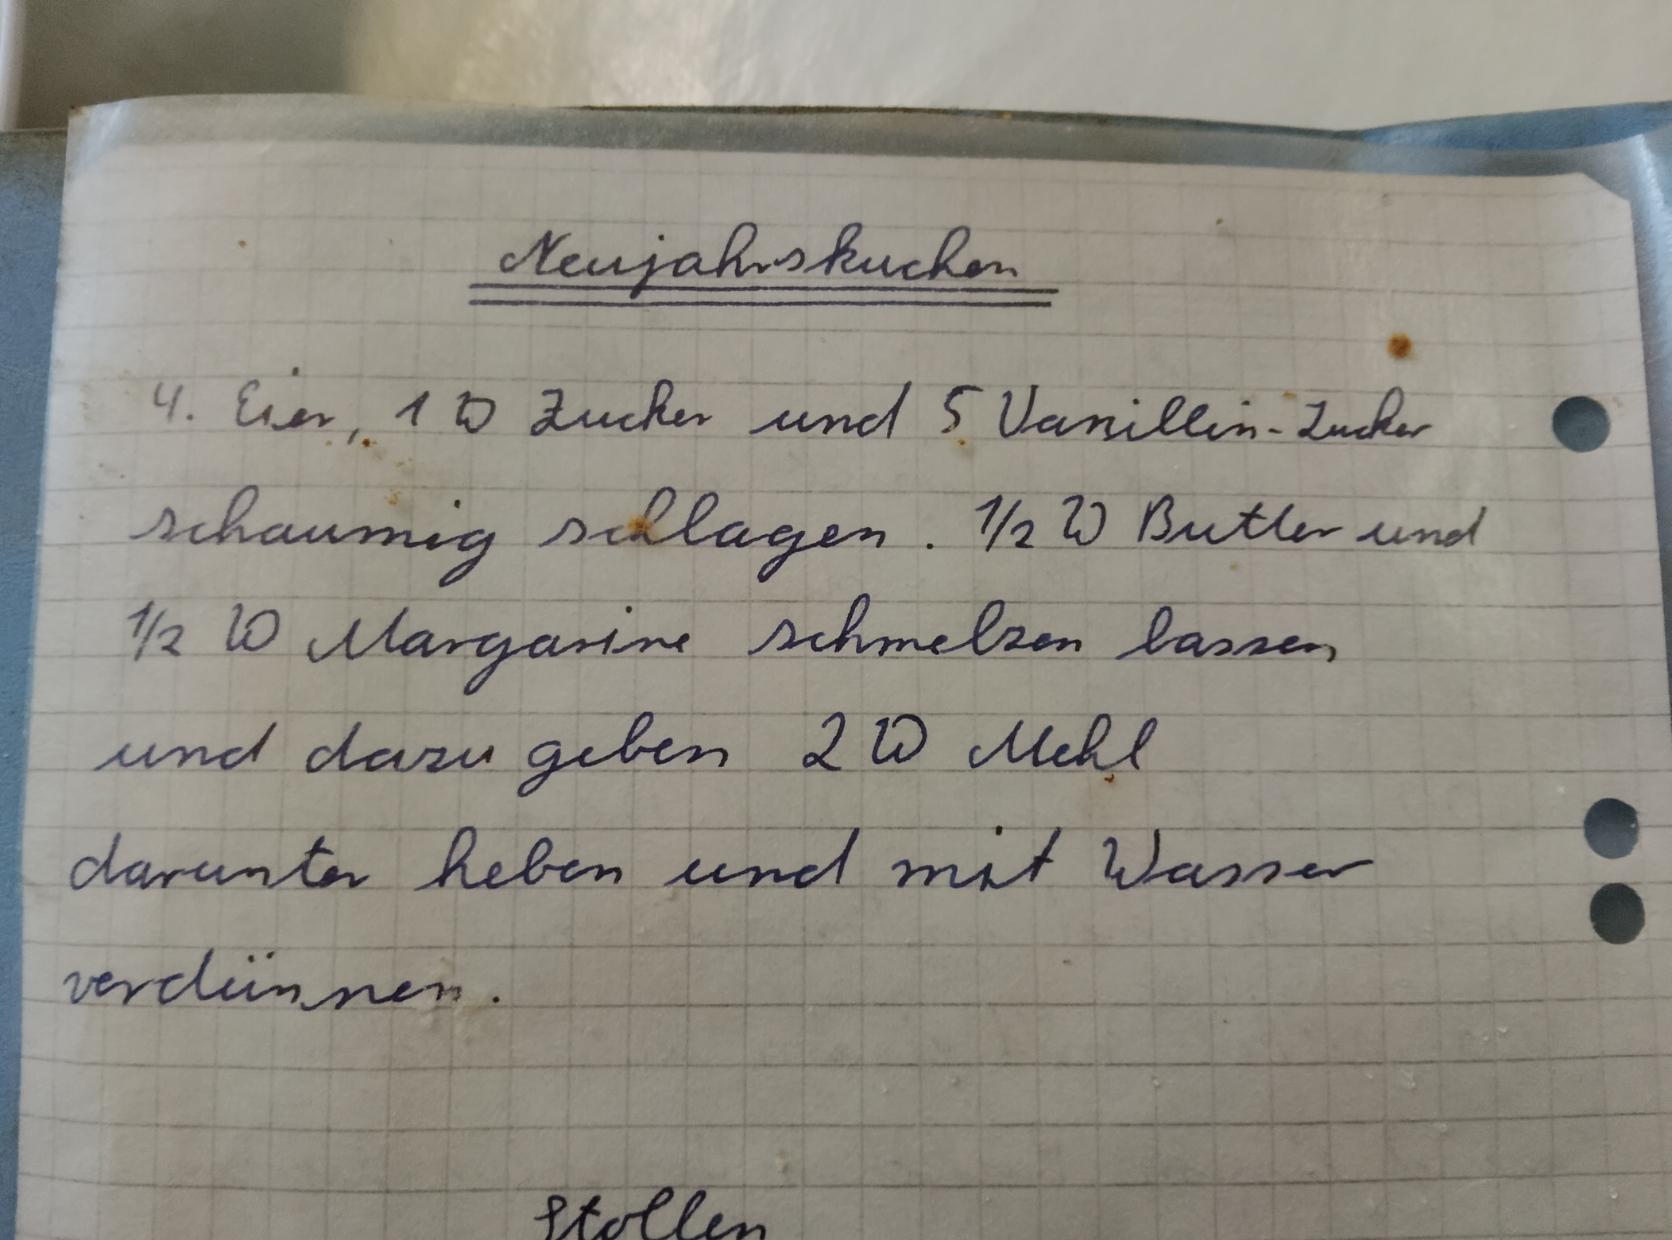 Neujahrskuchen
4. Eier, 1 ℔ Zucker und 5 Vanillin-Zucker
schaumig schlagen. 1/2 ℔ Butter und
1/2 ℔ Margarine schmelzen lassen
und dazu geben 2 ℔ Mehl
darunter heben und mit Wasser
verdünnen.
Stollen